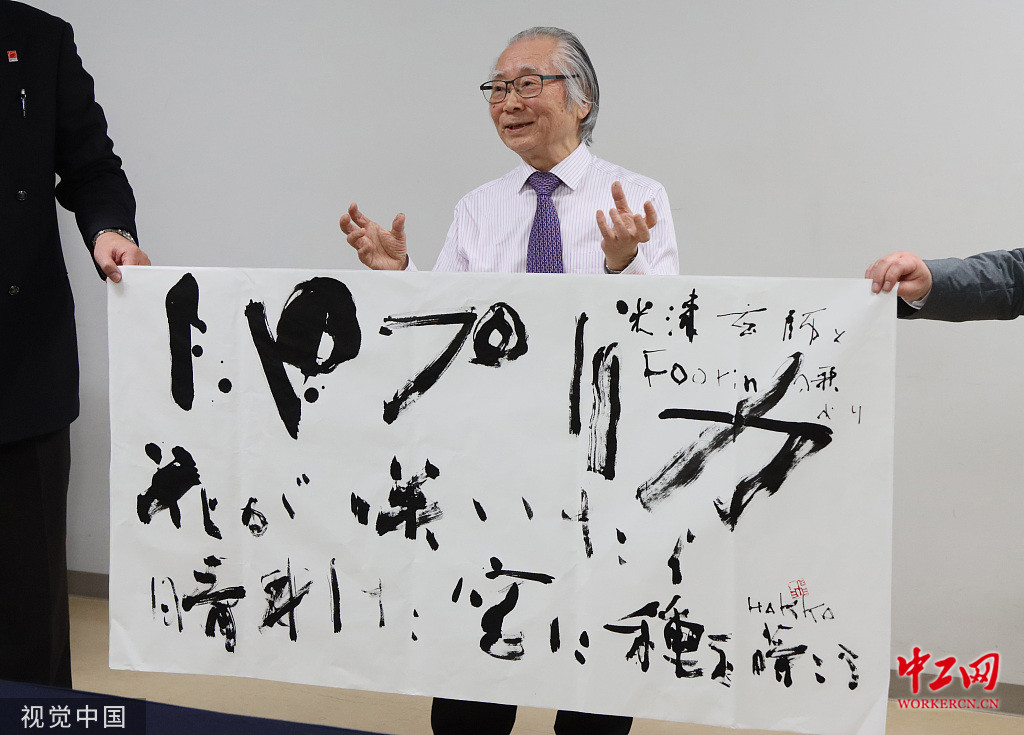 パプリカ
米津玄師と
Foorinの歌
より
花が咲いたら
晴れた空に種を蒔こう
视觉中国
中工网
WORKERCN.CN